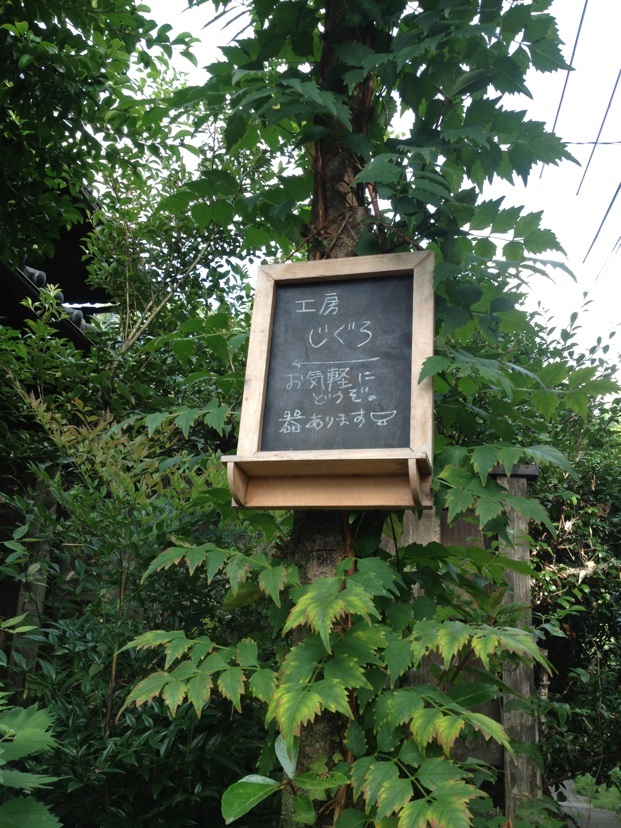 工房
じぐろ
お気軽に
どうぞ。
器あります